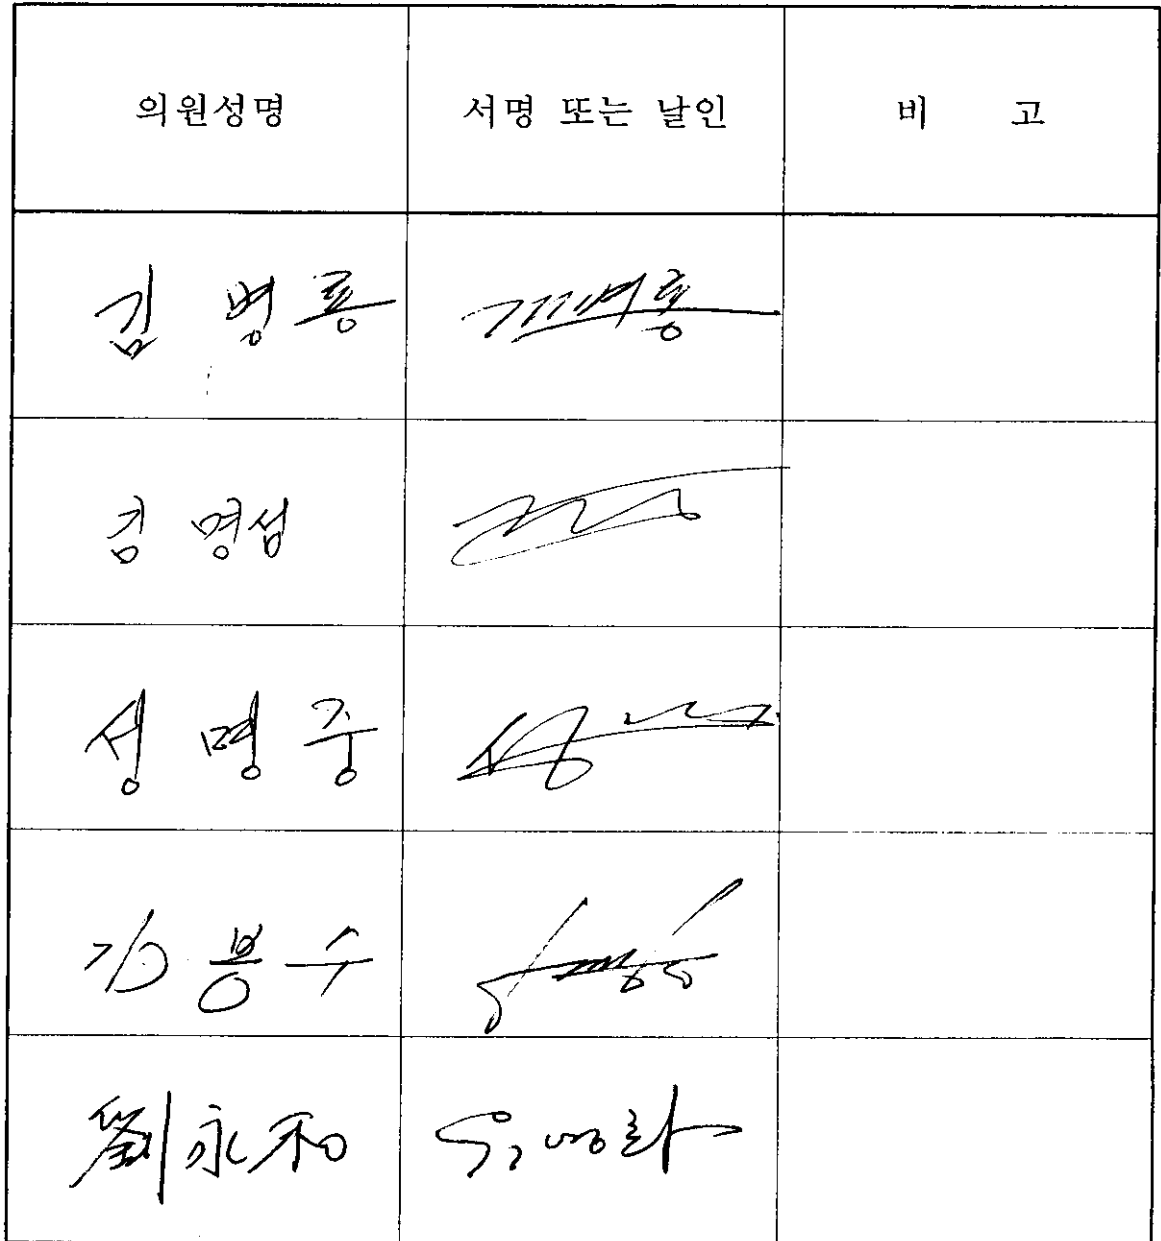 의원성명 서명 또는 날인 비 고
김 병 룡
김 명섭
성 명 중
김 봉 수
劉永和 유영화